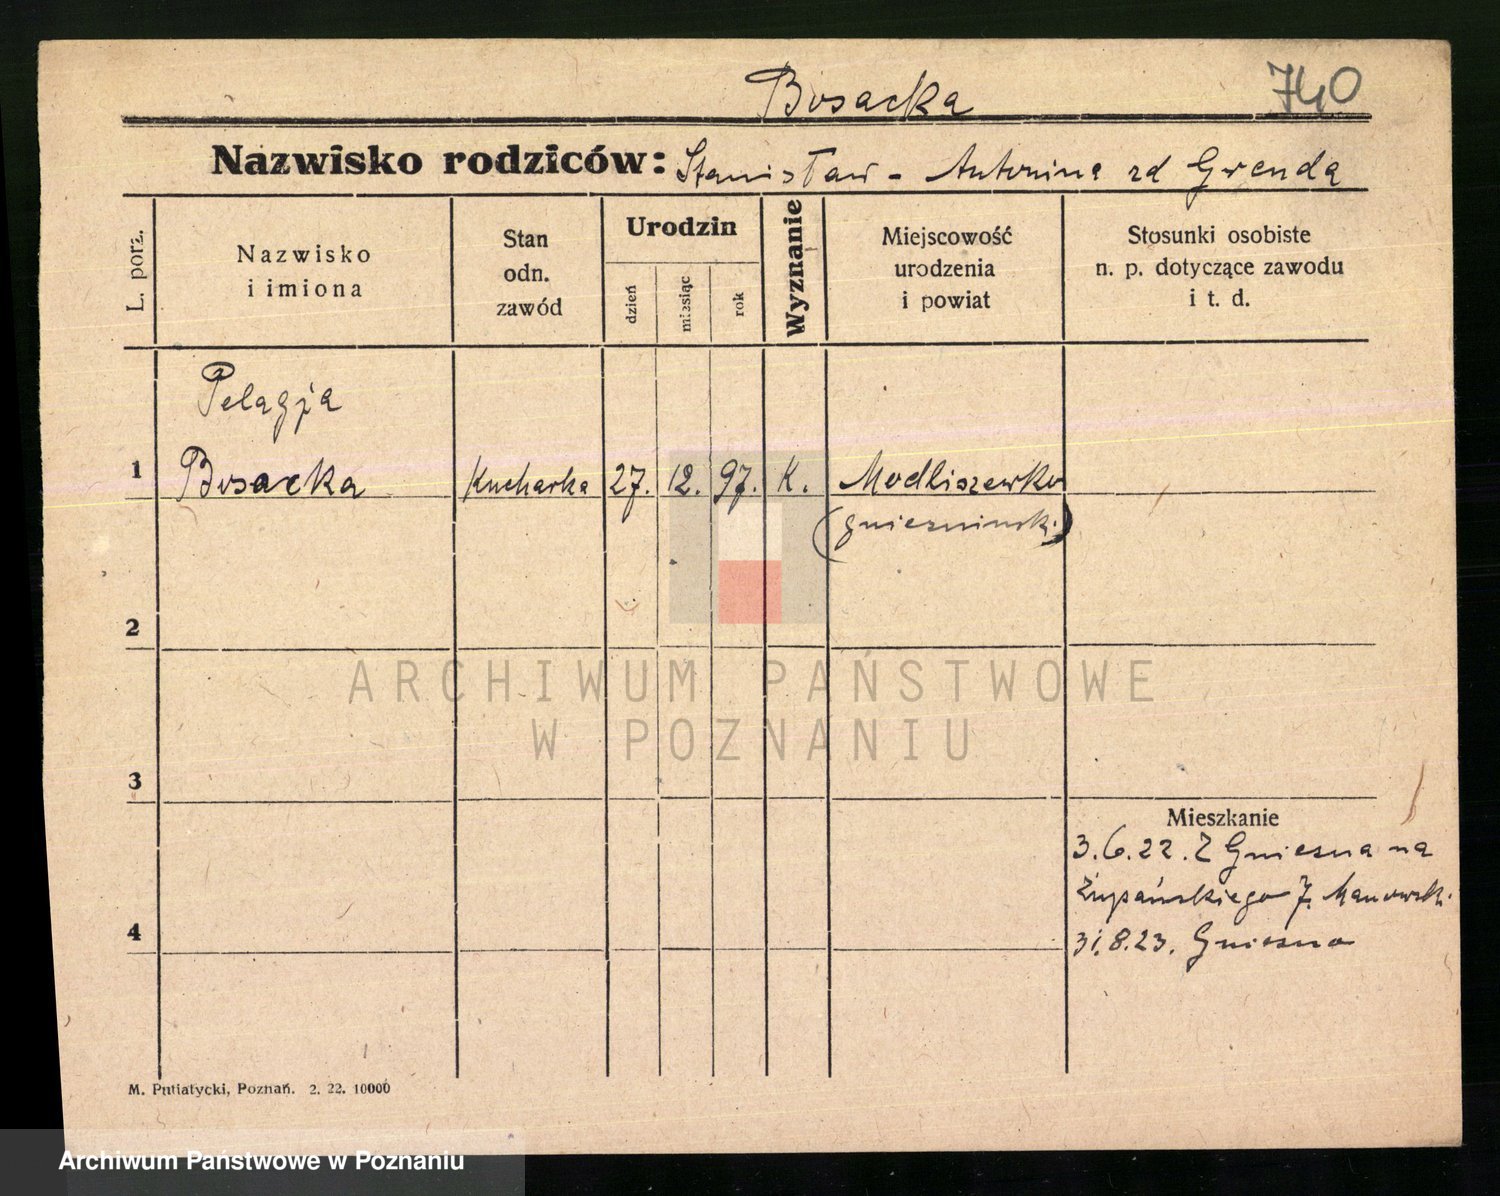 Bosacka
740
Nazwisko rodziców: Stanisław - Antonina zd Grenda
L. porz.
Nazwisko
i imiona
Stan
odn.
zawód
Urodzin
dzień
miesiąc
rok
Wyznanie
Miejscowość
urodzenia
i powiat
Stosunki osobiste
n. p. dotyczące zawodu
i t. d.
Pelagja
1 Bosacka Kucharka 27. 12. 97. K. Modliszewko
(gniezninsk.)
2
3
Mieszkanie
3.6.22. Z Gniezna na
Żupańskiego 7. Manowsk.
4
31.8.23. Gniezno
M. Putiatycki, Poznań. 2. 22. 10000
ARCHIWUM PAŃSTWOWE
W POZNANIU
Archiwum Państwowe w Poznaniu